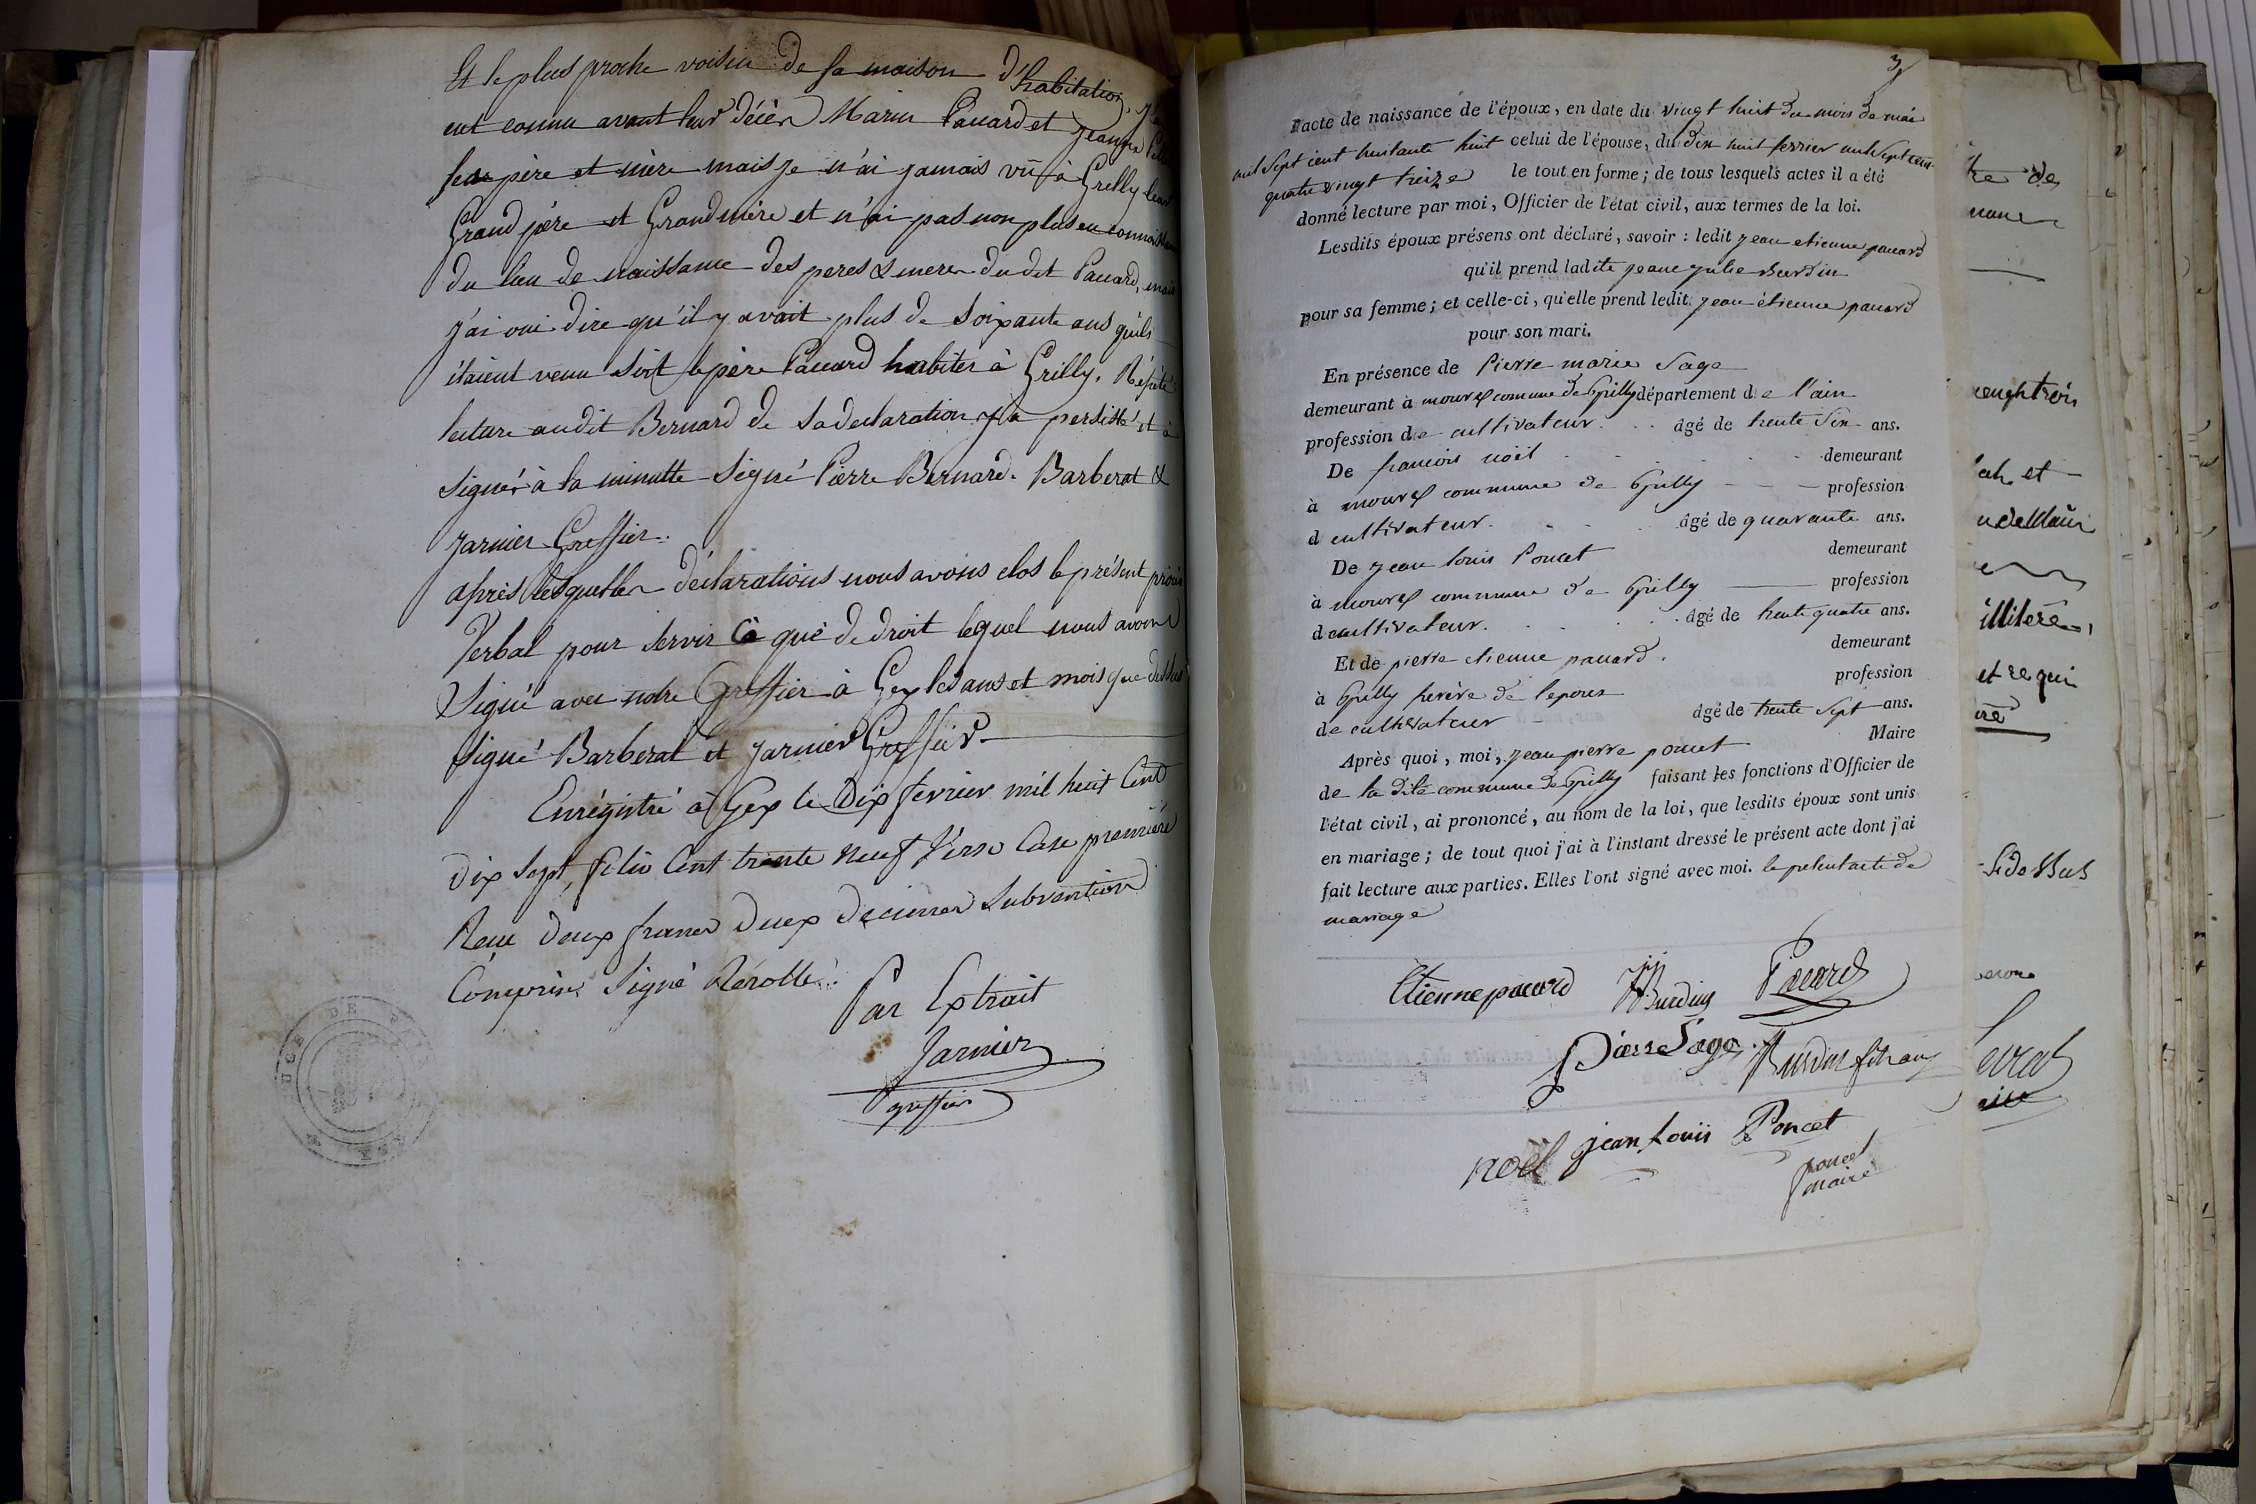 Et le plus proche voisin de sa maison d'habitation,
eut connu avant leur décèr Marin Pauard et Jeanne
père et mère mais je n'ai jamais vû à Grilly leur
Grand père et Grand mère et n'ai pas non plus eu connoissance
du lieu de naissance des peres & meres du dit Pauard, mais
j'ai oui dire qu'il y avait plus de Soixante ans qu'ils
étaient venu Soit le père Pauard habiter à Grilly. Répété
lecture audit Bernard de Sa declaration y a persisté et a
Signé à la minutte Signé Pierre Bernard. Barberat &
Jarnier Greffier.
après lesquelles déclarations nous avons clos le présent procès
Verbal pour servir Cé que de droit lequel nous avons
Signé avec notre Greffier à Gex les ans et mois que dessus
Signé Barberat et Jarnier Greffier
Enrégistré à Gex le Dix février mil huit Cent
Dix Sept, folio Cent trente neuf Verso Case première
Reçu Deux francs Deux Decimes Subvention
Comprise Signé Rérolle
Par Extrait
Jarnier
greffier
3
l'acte de naissance de l'époux, en date du vingt huit du mois de mai
mil Sept cent huitante huit celui de l'épouse, du dix huit ferrier mil Sept cent
quatre vingt treize le tout en forme ; de tous lesquels actes il a été
donné lecture par moi, Officier de l'état civil, aux termes de la loi.
Lesdits époux présens ont déclaré, savoir : ledit jean etienne pauard
qu'il prend ladite jeane julie Burdin
pour sa femme ; et celle-ci, qu'elle prend ledit jean étienne pauard
pour son mari.
En présence de Pierre marie Sage
demeurant à mourex commune de Grilly département de l'ain
profession de cultivateur. âgé de trente Six ans.
De francois noël demeurant
à mourex commune de Grilly profession
d cultivateur. âgé de quarante ans.
De jean louis Poncet demeurant
à mourex commune de Grilly profession
d cultivateur. âgé de trente quatre ans.
Et de pierre etienne pauard. demeurant
à Grilly frerère de lepoux profession
de cultivateur âgé de trente Sept ans.
Après quoi, moi, jean pierre poncet Maire
de la dite commune de Grilly faisant les fonctions d'Officier de
l'état civil, ai prononcé, au nom de la loi, que lesdits époux sont unis
en mariage ; de tout quoi j'ai à l'instant dressé le présent acte dont j'ai
fait lecture aux parties. Elles l'ont signé avec moi. le present acte de
mariage
Etienne pacard JJ Burdin Pacard
Pierre Sage Burdin
noël jean Louis Poncet
poncet
maire
et
et requi